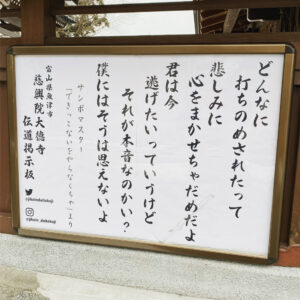 どんなに
打ちのめされたって
悲しみに
心をまかせちゃだめだよ
君は今
逃げたいっていうけど
それが本音なのかい?
僕にはそうは思えないよ
サンボマスター
「できっこないをやらなくちゃ」より
富山県魚津市
慈興院大徳寺
伝道掲示板
@jikoin_daitokuji